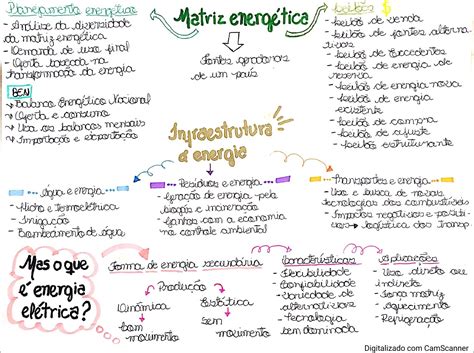 Planejamento energético
- Análise da diversidade
da matriz energética
- Demanda de uso final
- Oferta baseada na
transformação da energia
BEN
✓ Balanço Energético Nacional
✓ Oferta e consumo
✓ Usa os balanços mensais
✓ Importação e exportação
Matriz energética
Fontes geradoras
de um país
Leilões
- Leilão de venda
- Leilão de fontes alterna
tivas
- Leilão de Excedentes
- Leilão de energia de
reserva
- Leilão de energia nova
- Leilão de energia
existente
- Leilão de compra
- Leilão de ajuste
- Leilão estruturante
Infraestrutura
e energia
Água e energia
- Hidro e termoelétrica
- Irrigação
- Bombeamento de água
Resíduos e energia
- Geração de energia pelo
biogás e incineração
- Ganhos com a economia
no controle ambiental
Transportes e energia
- Uso e busca de novas
tecnologias dos combustíveis
- Impactos negativos e positi
vos → logística dos transp.
Mas o que
é energia
elétrica?
Forma de energia secundária
Produção
Dinâmica
com
movimento
Estática
sem
movimento
Características
- Flexibilidade
- Confiabilidade
- Variedade de
alternativas
- Tecnologia
bem dominada
Aplicações
- Uso direto ou
indireto
- Força motriz
- Aquecimento
- Refrigeração
Digitalizado com CamScanner